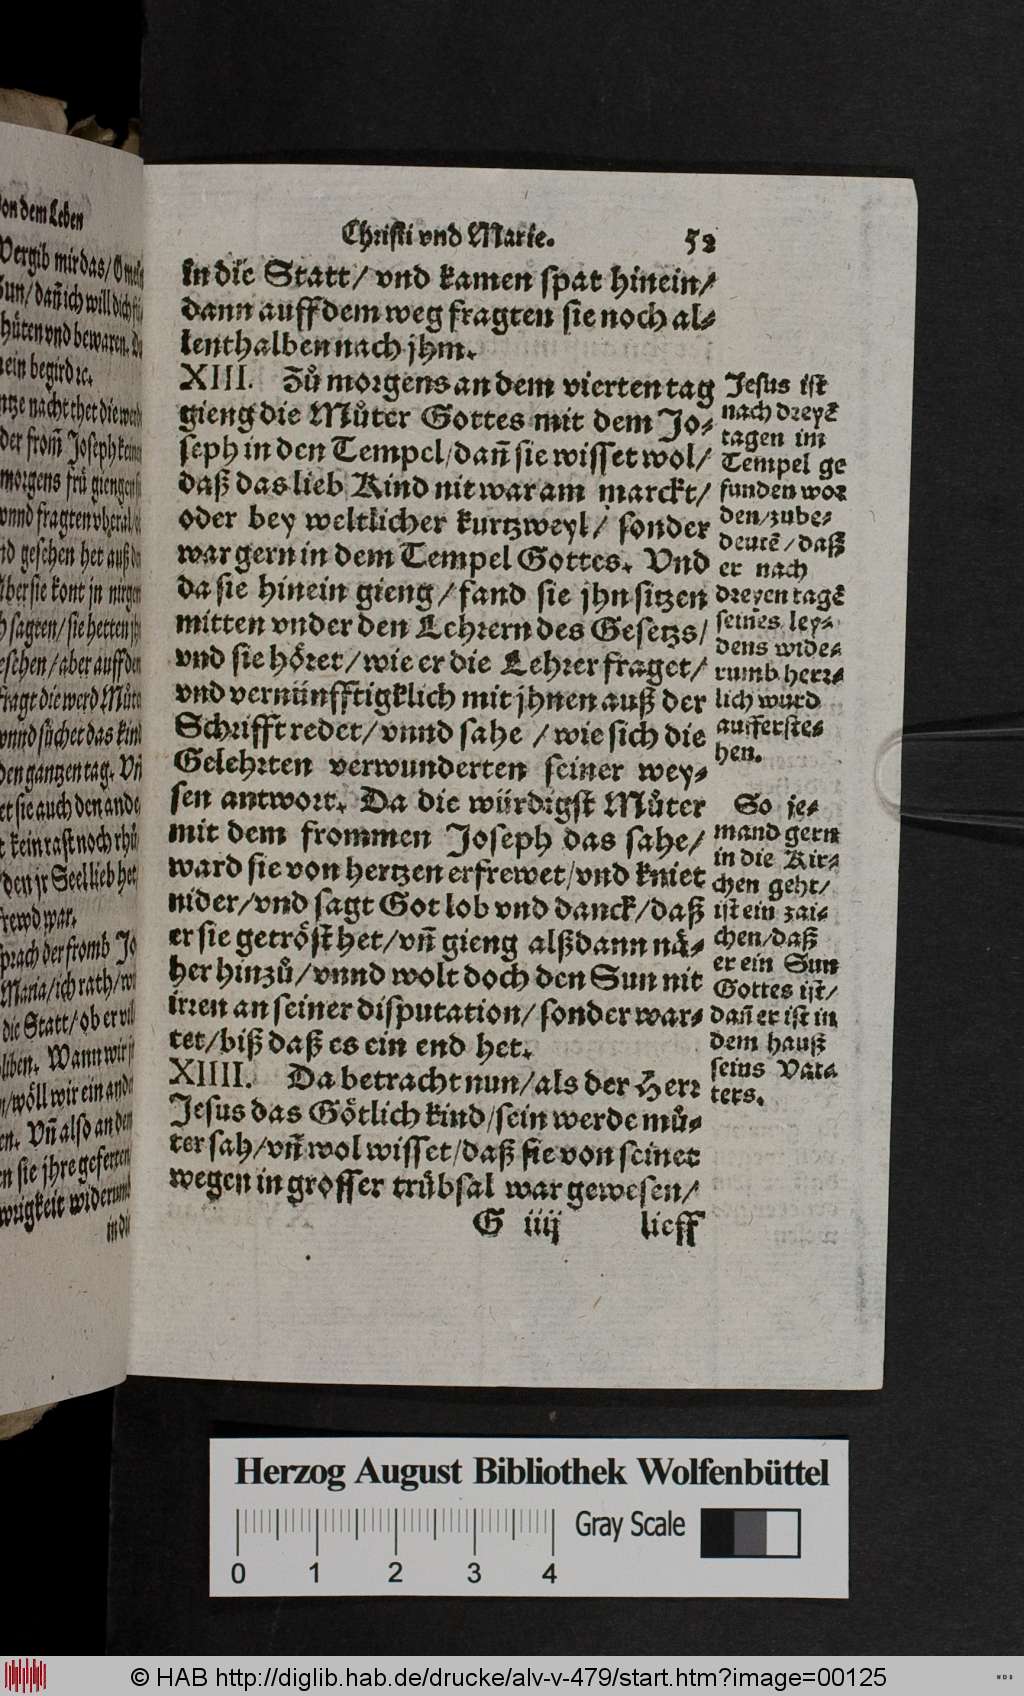 von dem Leben
Vergib mir das/ O mein
Sun/ dañ ich will dich
hüten vnd bewaren.
mein begird ꝛc.
nacht thet die
der from̃ Joseph kein
morgens frü giengen
vnnd fragten vberal
gesehen het auß
Aber sie kont jn nirgen
sagten/ sie hetten
gesehen/ aber auff den
fragt die werd Můter
vnnd sůchet das kind
den gantzen tag. Vñ
sie auch den ande
kein rast noch rhů
den jr Seel lieb het
frewd war.
sprach der fromb Jo
Maria/ ich rath/
die Statt/ ob er
bliben. Wann wir
wöll wir ein
Vñ also an dem
sie jhre geferten
widerumb
in die
Christi vnd Marie. 52
in die Statt/ vnd kamen spat hinein/
dann auff dem weg fragten sie noch al⸗
lenthalben nach jhm.
XIII. Zů morgens an dem vierten tag
gieng die Můter Gottes mit dem Jo⸗
seph in den Tempel/ dañ sie wisset wol/
daß das lieb Kind nit war am marckt/
oder bey weltlicher kurtzweyl/ sonder
war gern in dem Tempel Gottes. Vnd
da sie hinein gieng/ fand sie jhn sitzen
mitten vnder den Lehrern des Gesetzs/
vnd sie höret/ wie er die Lehrer fraget/
vnd vernünfftigklich mit jhnen auß der
Schrifft redet/ vnnd sahe / wie sich die
Gelehrten verwunderten seiner wey⸗
sen antwort. Da die würdigst Můter
mit dem frommen Joseph das sahe/
ward sie von hertzen erfrewet/ vnd kniet
nider/ vnd sagt Got lob vnd danck/ daß
er sie getröst het/ vñ gieng alßdann nä⸗
her hinzů/ vnnd wolt doch den Sun nit
irren an seiner disputation/ sonder war⸗
tet/ biß daß es ein end het.
XIIII. Da betracht nun/ als der Herr
Jesus das Götlich kind/ sein werde mů⸗
ter sah/ vñ wol wisset/ daß sie von seinet
wegen in grosser trübsal war gewesen/
G iiij lieff
Jesus ist
nach dreyẽ
tagen im
Tempel ge
funden wor
den/ zube⸗
deutẽ/ daß
er nach
dreyen tagẽ
seines ley⸗
dens wide⸗
rumb herr⸗
lich wurd
aufferste⸗
hen.
So je⸗
mand gern
in die Kir⸗
chen geht/
ist ein zai⸗
chen/ daß
er ein Sun
Gottes ist/
dañ er ist in
dem hauß
seins Vat⸗
ters.
Herzog August Bibliothek Wolfenbüttel
Gray Scale
0 1 2 3 4
© HAB http://diglib.hab.de/drucke/alv-v-479/start.htm?image=00125